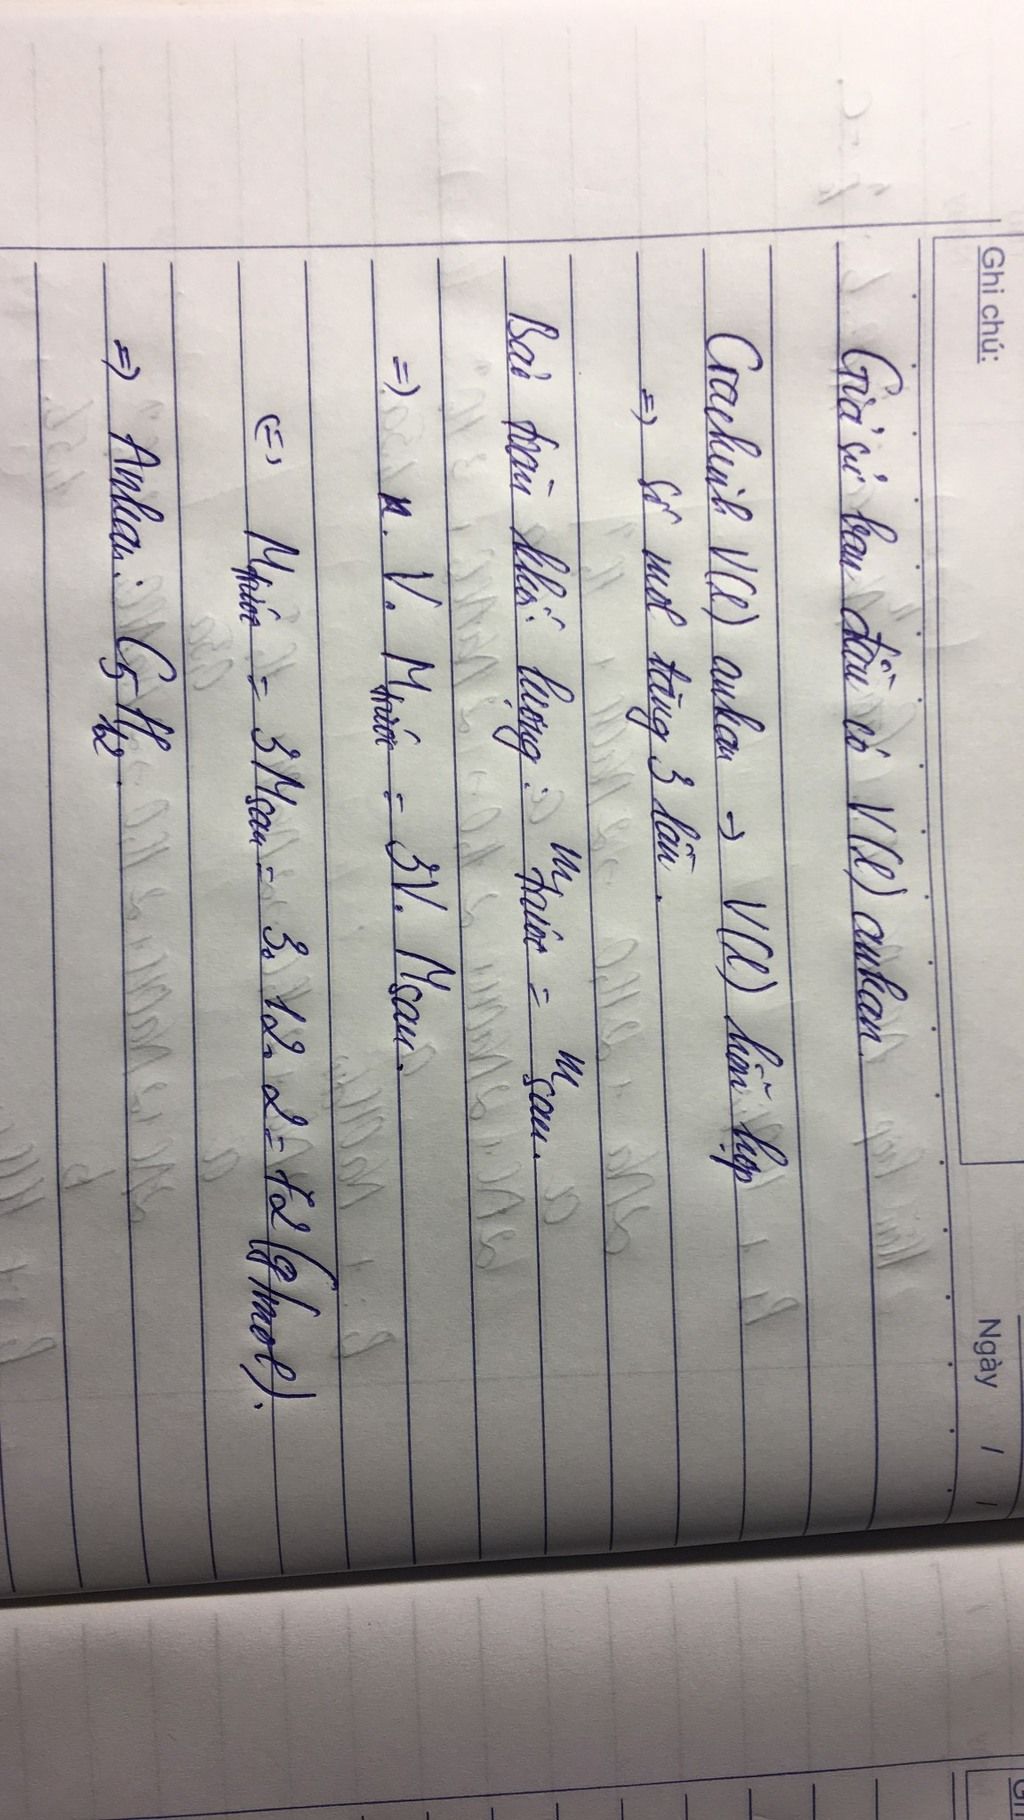 Ghi chú:
Ngày / /
Giả sử ban đầu có V(l) ankan.
Crackinh V(l) ankan → V(l) hỗn hợp
=> số mol tăng 3 lần.
Bảo toàn khối lượng: m trước = m sau.
=> n. V. M trước = 3V. M sau.
<=> M trước = 3M sau = 3. 12. 2 = 72 (g/mol).
=> Ankan: C5H12.